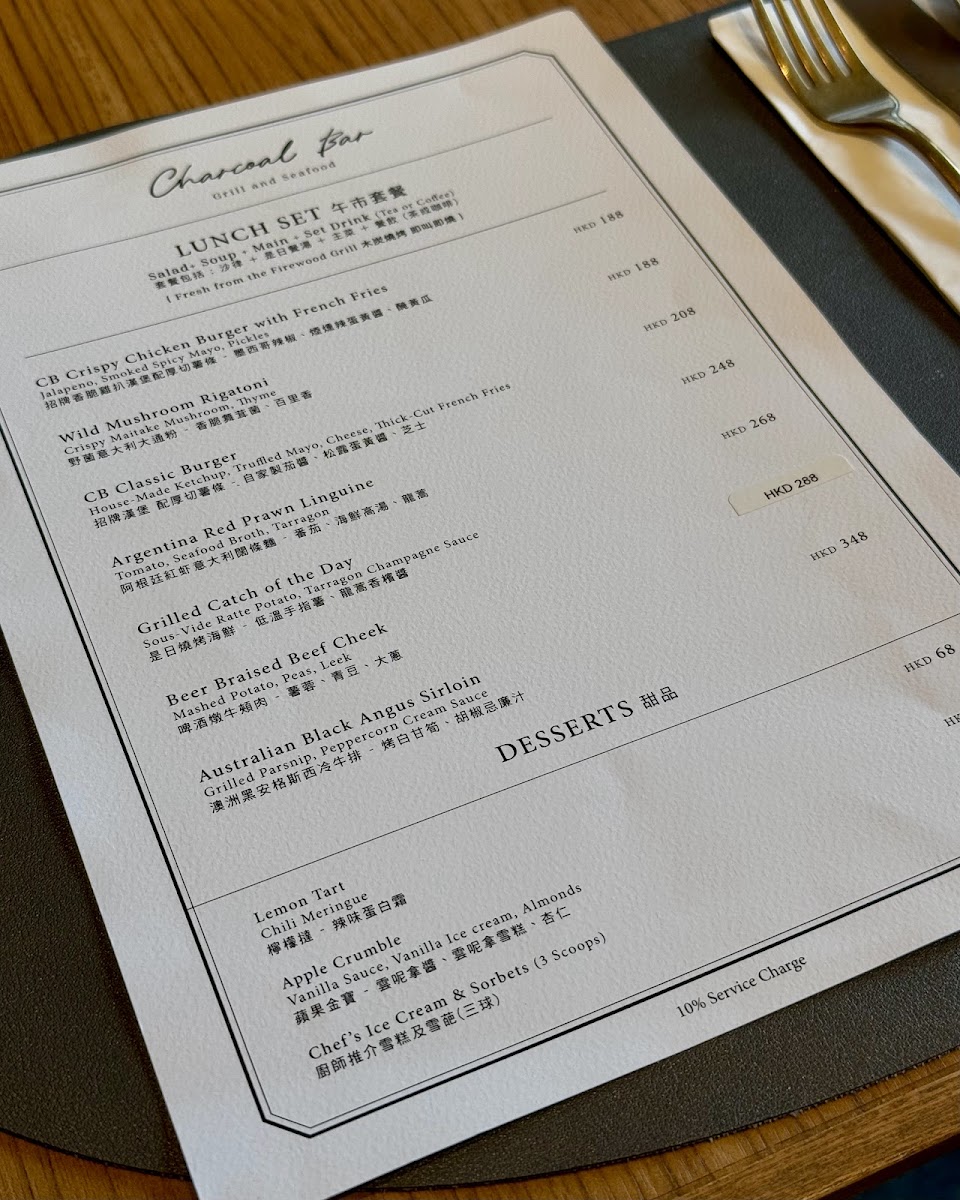 Charcoal Bar
Grill and Seafood
LUNCH SET 午市套餐
Salad+ Soup + Main + Set Drink (Tea or Coffee)
套餐包括：沙律 + 是日餐湯 + 主菜 + 餐飲 (茶或咖啡)
[ Fresh from the Firewood Grill 木炭燒烤 即叫即燒 ]
CB Crispy Chicken Burger with French Fries HKD 188
Jalapeno, Smoked Spicy Mayo, Pickles
招牌香脆雞扒漢堡配厚切薯條 - 墨西哥辣椒、煙燻辣蛋黃醬、醃黃瓜
Wild Mushroom Rigatoni HKD 188
Crispy Maitake Mushroom, Thyme
野菌意大利大通粉 - 香脆舞茸菌、百里香
CB Classic Burger HKD 208
House-Made Ketchup, Truffled Mayo, Cheese, Thick-Cut French Fries
招牌漢堡 配厚切薯條 - 自家製茄醬、松露蛋黃醬、芝士
Argentina Red Prawn Linguine HKD 248
Tomato, Seafood Broth, Tarragon
阿根廷紅虾意大利闊條麵 - 番茄、海鮮高湯、龍蒿
Grilled Catch of the Day HKD 268
Sous-Vide Ratte Potato, Tarragon Champagne Sauce
是日燒烤海鮮 - 低溫手指薯、龍蒿香檳醬
Beer Braised Beef Cheek HKD 288
Mashed Potato, Peas, Leek
啤酒燉牛頰肉 - 薯蓉、青豆、大蔥
Australian Black Angus Sirloin HKD 348
Grilled Parsnip, Peppercorn Cream Sauce
澳洲黑安格斯西冷牛排 - 烤白甘筍、胡椒忌廉汁
DESSERTS 甜品
Lemon Tart HKD 68
Chili Meringue
檸檬撻 - 辣味蛋白霜
Apple Crumble
Vanilla Sauce, Vanilla Ice cream, Almonds
蘋果金寶 - 雲呢拿醬、雲呢拿雪糕、杏仁
Chef's Ice Cream & Sorbets (3 Scoops)
廚師推介雪糕及雪葩(三球)
10% Service Charge